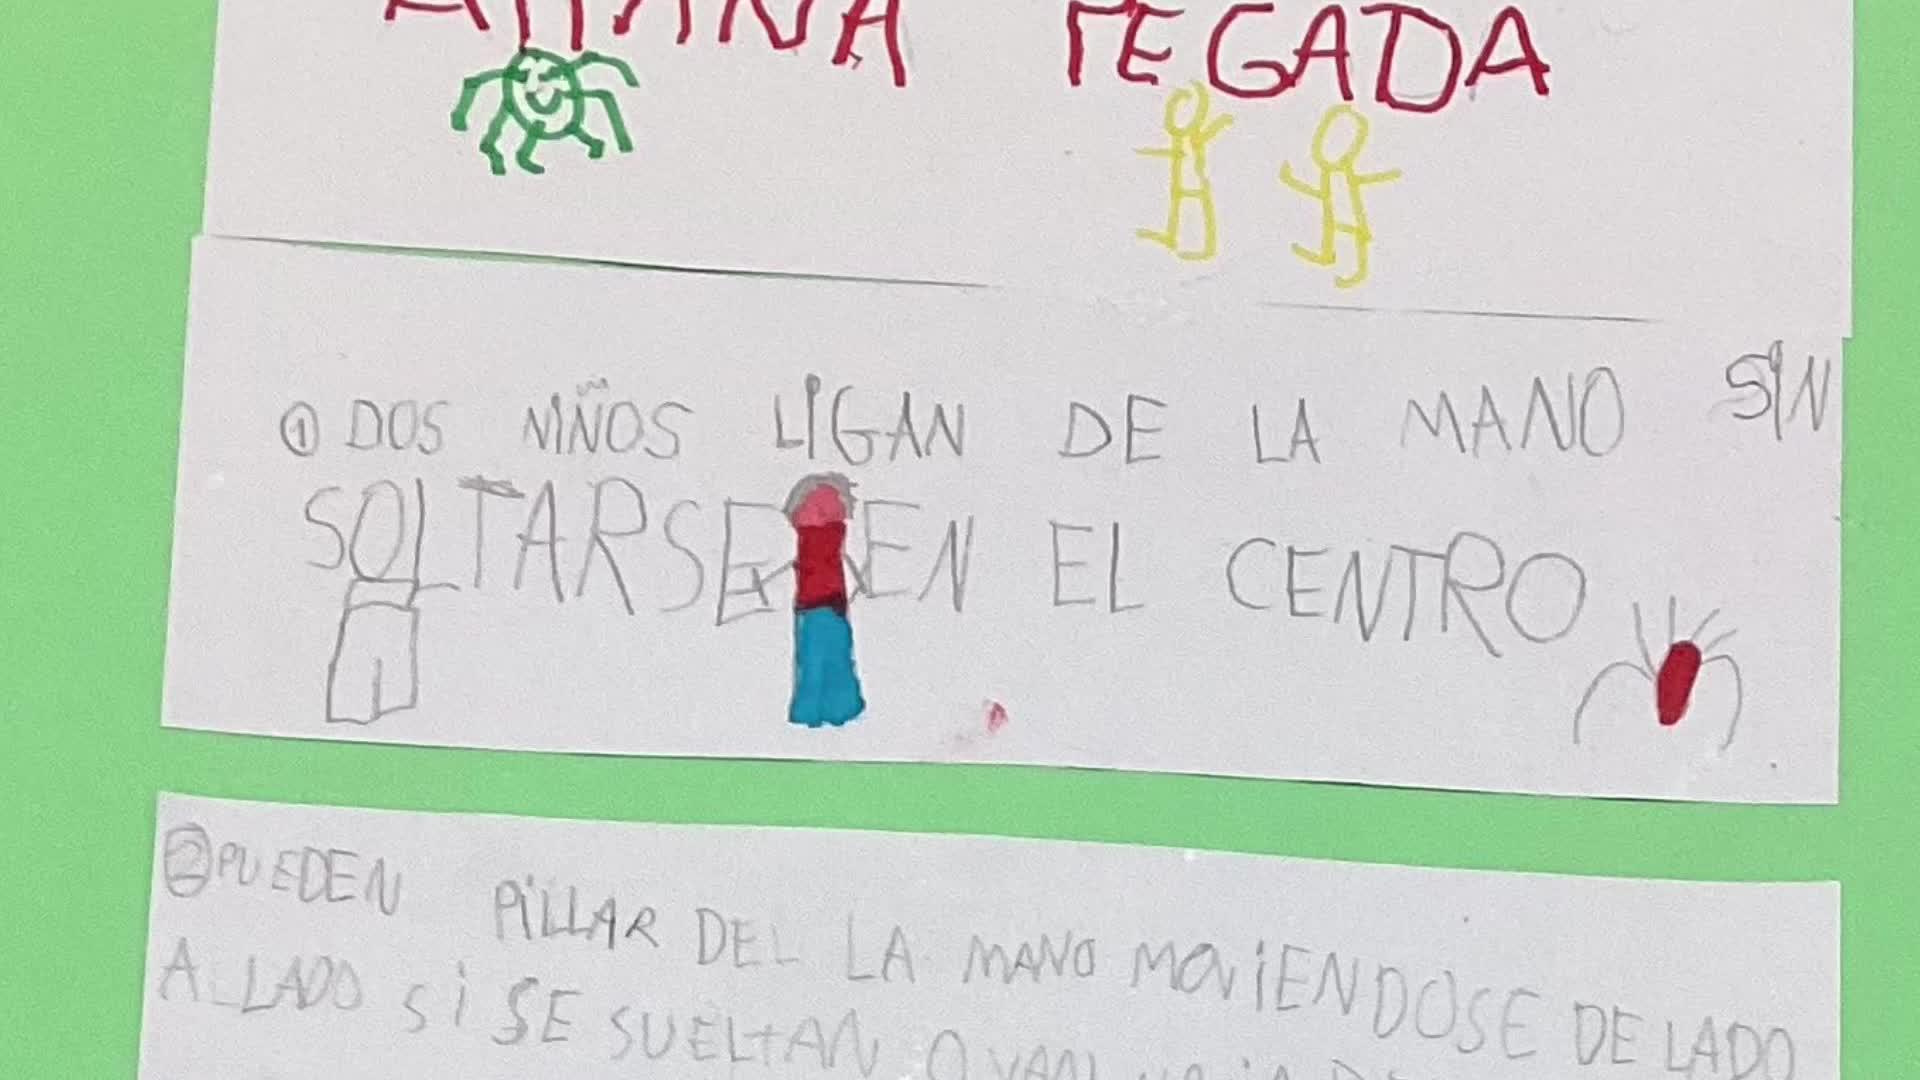 PEGADA
① DOS NIÑOS LIGAN DE LA MANO SIN
SOLTARSE EN EL CENTRO
② PUEDEN PILLAR DEL LA MANO MOVIENDOSE DE LADO
A LADO SI SE SUELTAN O VAN